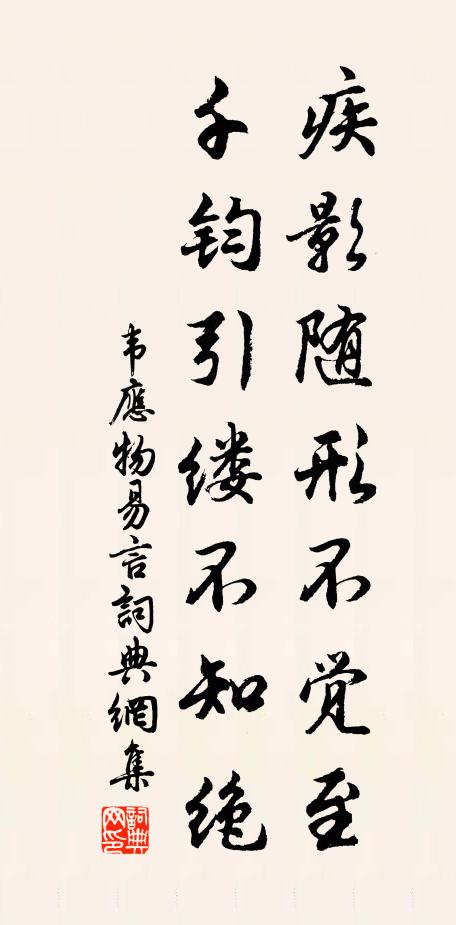 疾影随形不觉至
千钧引缕不知绝
韦應物易言詞典網集
詞典网印